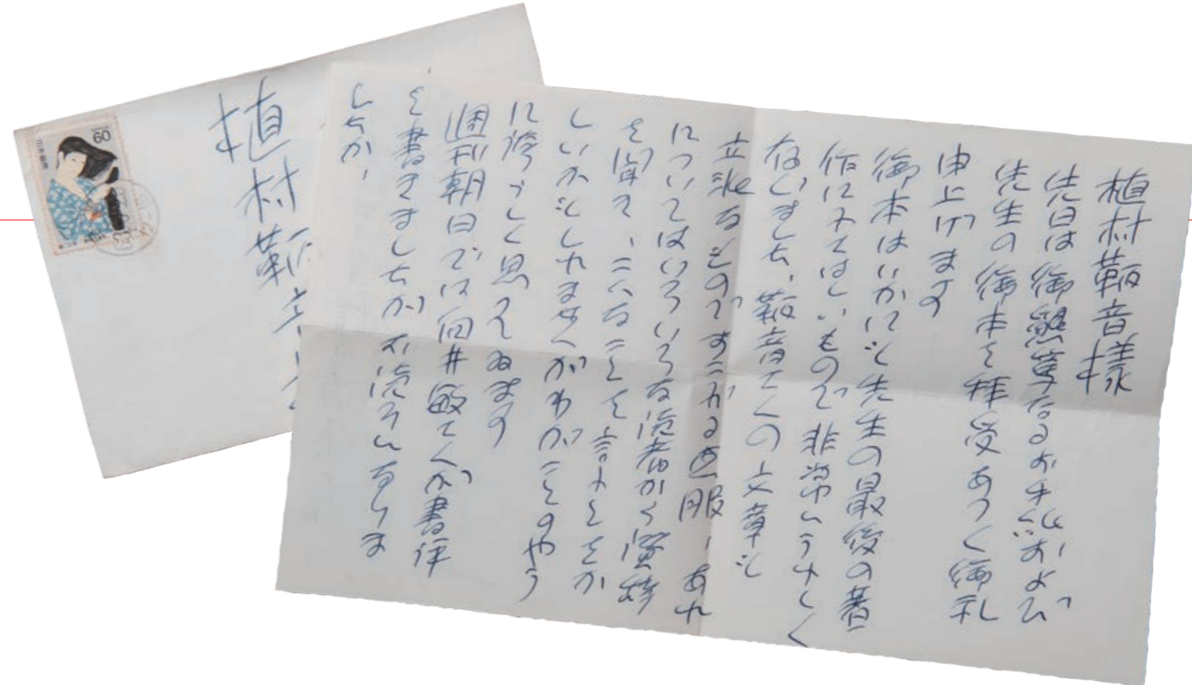 植村鞆音様
先日は御懇篤なるお手紙および
先生の御本を拝受あつく御礼
申上げます
御本はいかにも先生の最後の著
作にふさはしいもので非常にうれしく
存じました、鞆音さんの文章も
立派なものですこぶる 、あれ
についてはいろいろな読者から讃辞
を聞き、こんなことを言ふとをか
しいかもしれませんがわがことのやう
に誇らしく思えゐます
週刊朝日では向井敏さんが書評
を書きましたがお読みになりま
したか、
植村鞆音
60
日本郵便